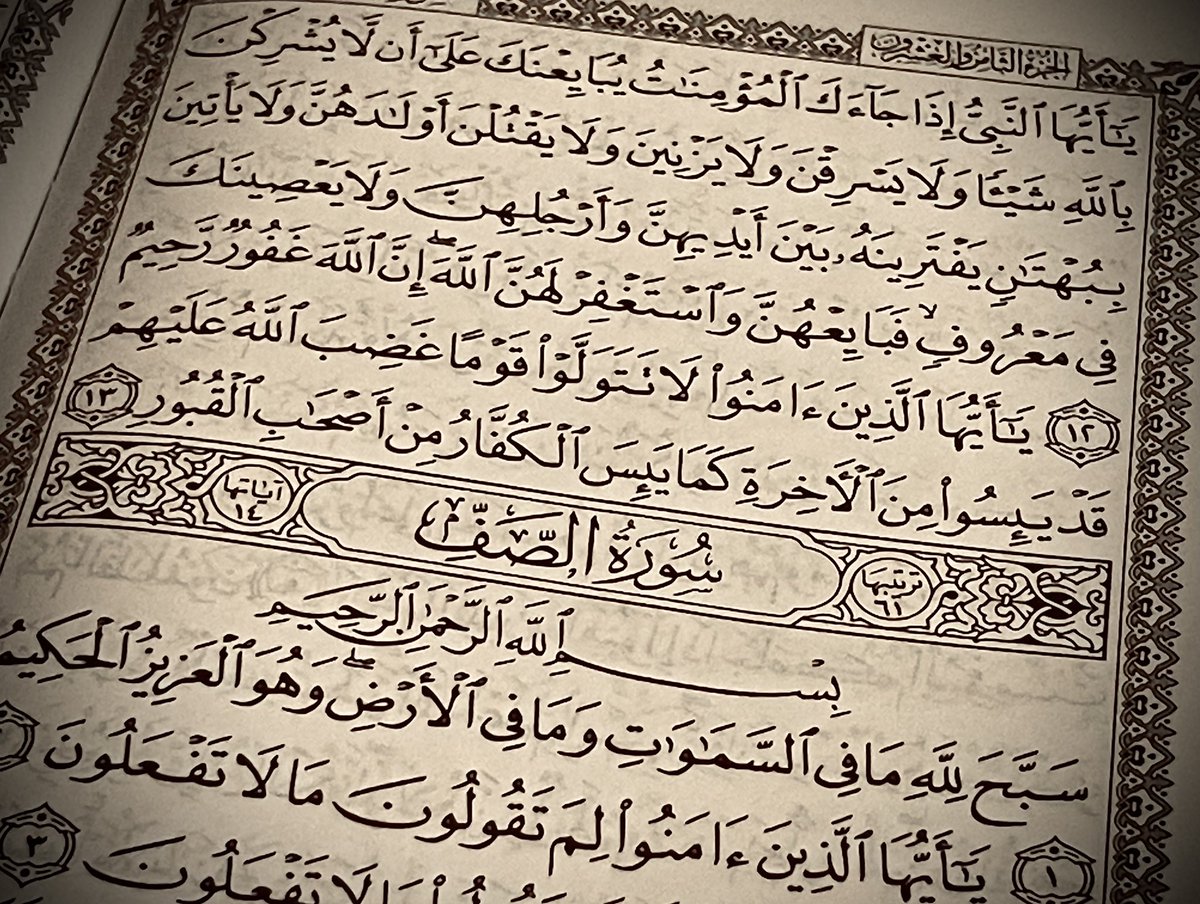 الجزء الثامن والعشرون
يَٰٓأَيُّهَا ٱلنَّبِيُّ إِذَا جَآءَكَ ٱلْمُؤْمِنَٰتُ يُبَايِعْنَكَ عَلَىٰٓ أَن لَّا يُشْرِكْنَ
بِٱللَّهِ شَيْـًٔا وَلَا يَسْرِقْنَ وَلَا يَزْنِينَ وَلَا يَقْتُلْنَ أَوْلَٰدَهُنَّ وَلَا يَأْتِينَ
بِبُهْتَٰنٍ يَفْتَرِينَهُۥ بَيْنَ أَيْدِيهِنَّ وَأَرْجُلِهِنَّ وَلَا يَعْصِينَكَ
فِى مَعْرُوفٍ ۙ فَبَايِعْهُنَّ وَٱسْتَغْفِرْ لَهُنَّ ٱللَّهَ ۖ إِنَّ ٱللَّهَ غَفُورٌ رَّحِيمٌ
١٢ يَٰٓأَيُّهَا ٱلَّذِينَ ءَامَنُوا۟ لَا تَتَوَلَّوْا۟ قَوْمًا غَضِبَ ٱللَّهُ عَلَيْهِمْ
قَدْ يَئِسُوا۟ مِنَ ٱلْءَاخِرَةِ كَمَا يَئِسَ ٱلْكُفَّارُ مِنْ أَصْحَٰبِ ٱلْقُبُورِ ١٣
ترتيبها ٦١ سُورَةُ الصَّفِّ آياتها ١٤
بِسْمِ ٱللَّهِ ٱلرَّحْمَٰنِ ٱلرَّحِيمِ
سَبَّحَ لِلَّهِ مَا فِى ٱلسَّمَٰوَٰتِ وَمَا فِى ٱلْأَرْضِ ۖ وَهُوَ ٱلْعَزِيزُ ٱلْحَكِيمُ
١ يَٰٓأَيُّهَا ٱلَّذِينَ ءَامَنُوا۟ لِمَ تَقُولُونَ مَا لَا تَفْعَلُونَ
لَا تَفْعَلُونَ ٣